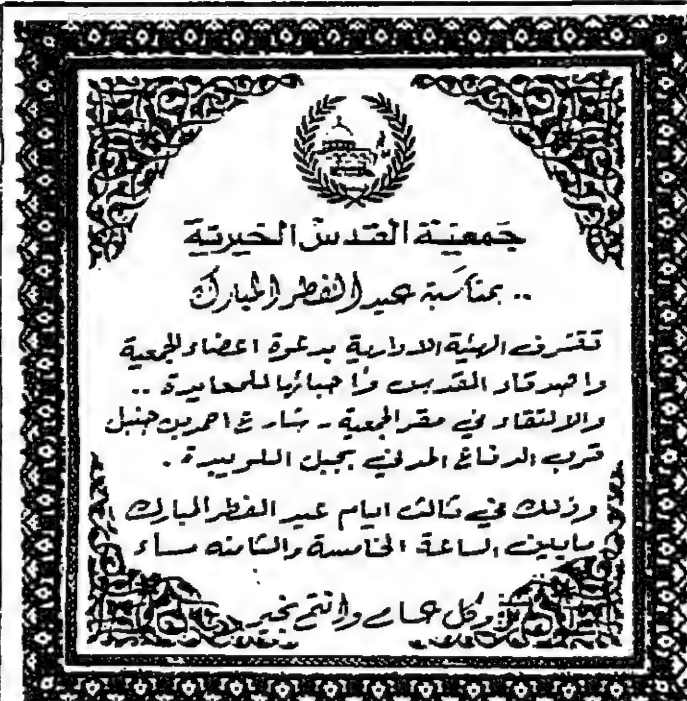 جمعية القدس الخيرية
.. بمناسبة عيد الفطر المبارك
تتشرف الهيئة الادارية بدعوة اعضاء الجمعية
واصدقاء القدس وأحبائها للمعايدة ..
والالتقاء في مقر الجمعية - شارع احمد بن حنبل
قرب الدفاع المدني بجبل اللويبدة .
وذلك في ثالث ايام عيد الفطر المبارك
مابين الساعة الخامسة والثامنه مساء
وكل عام وانتم بخير